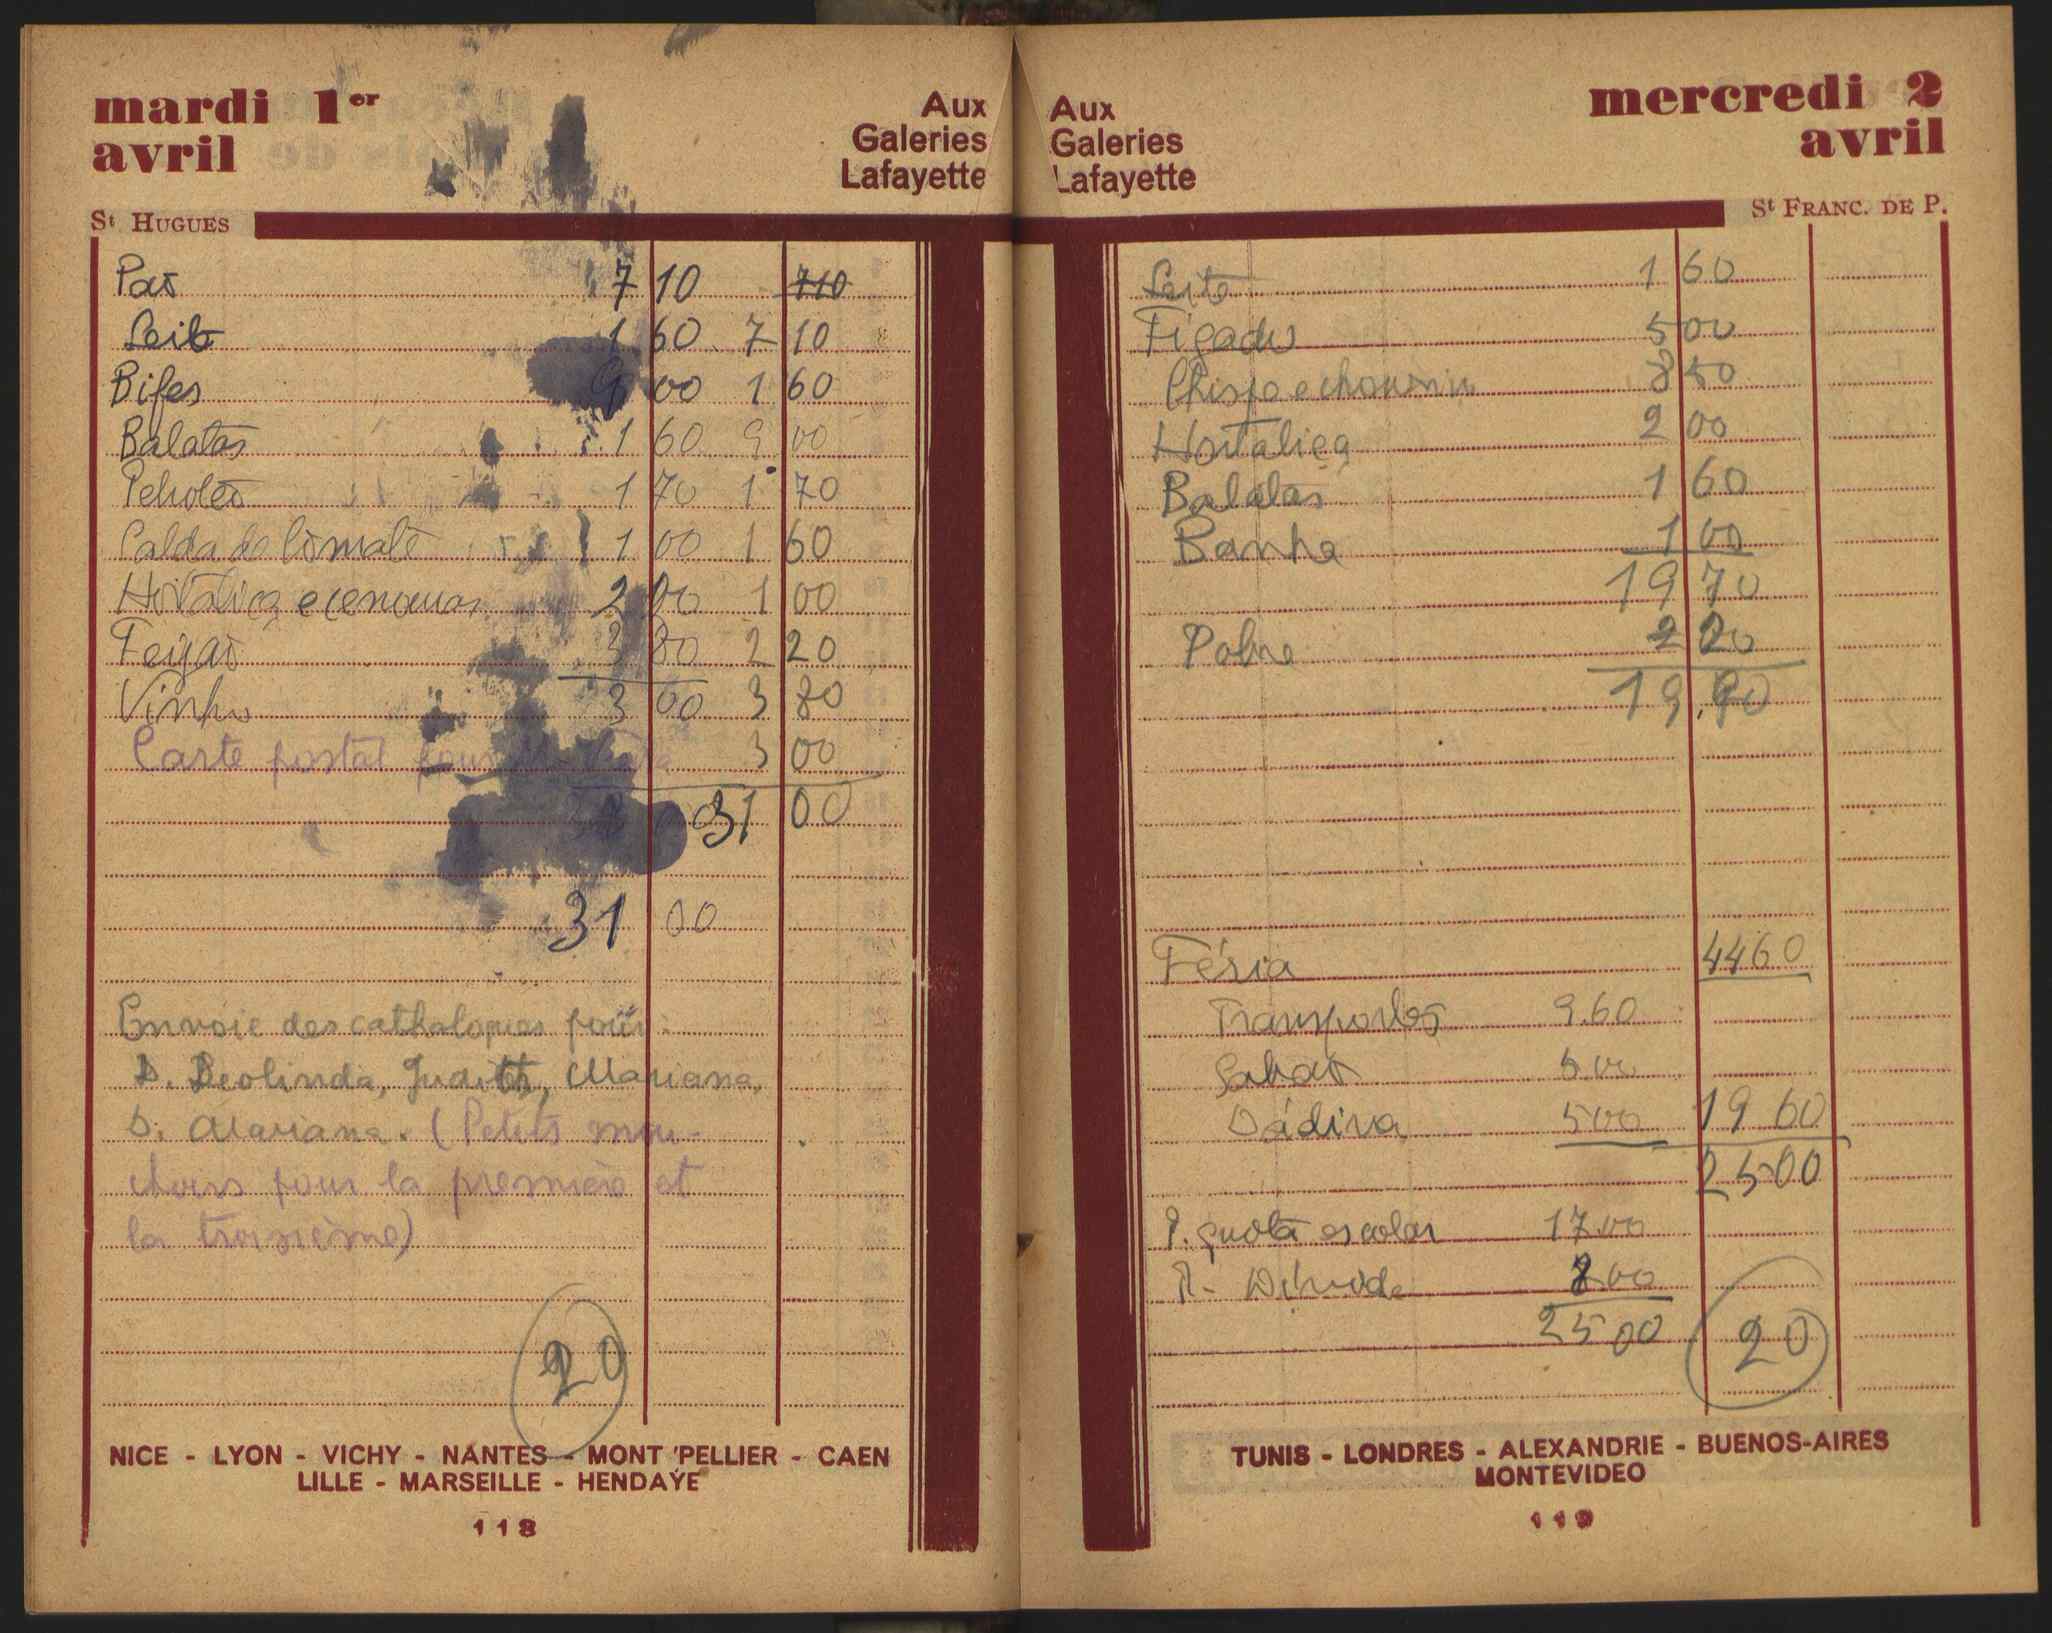 mardi 1er
avril
Aux
Galeries
Lafayette
St HUGUES
Pão 7 10 710
Leite 1 60 7 10
Bifes 9 00 1 60
Batatas 1 60 9 00
Petroleo 1 70 1 70
Calda de tomate 1 00 1 60
Hortaliça e cenouras 2 20 1 00
Feijão 3 80 2 20
Vinho 3 00 3 80
Carte postal pour 3 00
31 00
31 00
Envoie des cathalogues pour:
D. Deolinda, Judith, Mariana,
D. Mariana. (Petits mou-
choirs pour la première et
la troisième)
20
NICE - LYON - VICHY - NANTES - MONTPELLIER - CAEN
LILLE - MARSEILLE - HENDAYE
118
Aux
Galeries
Lafayette
mercredi 2
avril
St FRANC. DE P.
Leite 1 60
Figado 5 00
Chispe e chouriço 8 50
Hortaliça 2 00
Batatas 1 60
Banha 1 00
19 70
Pobre 20
19,90
Féria 44 60
Transportes 9.60
Sabão 5.00
Dádiva 500 19 60
25 00
P. quota escolar 17.00
P. 8.00
25 00
20
TUNIS - LONDRES - ALEXANDRIE - BUENOS-AIRES
MONTEVIDEO
119